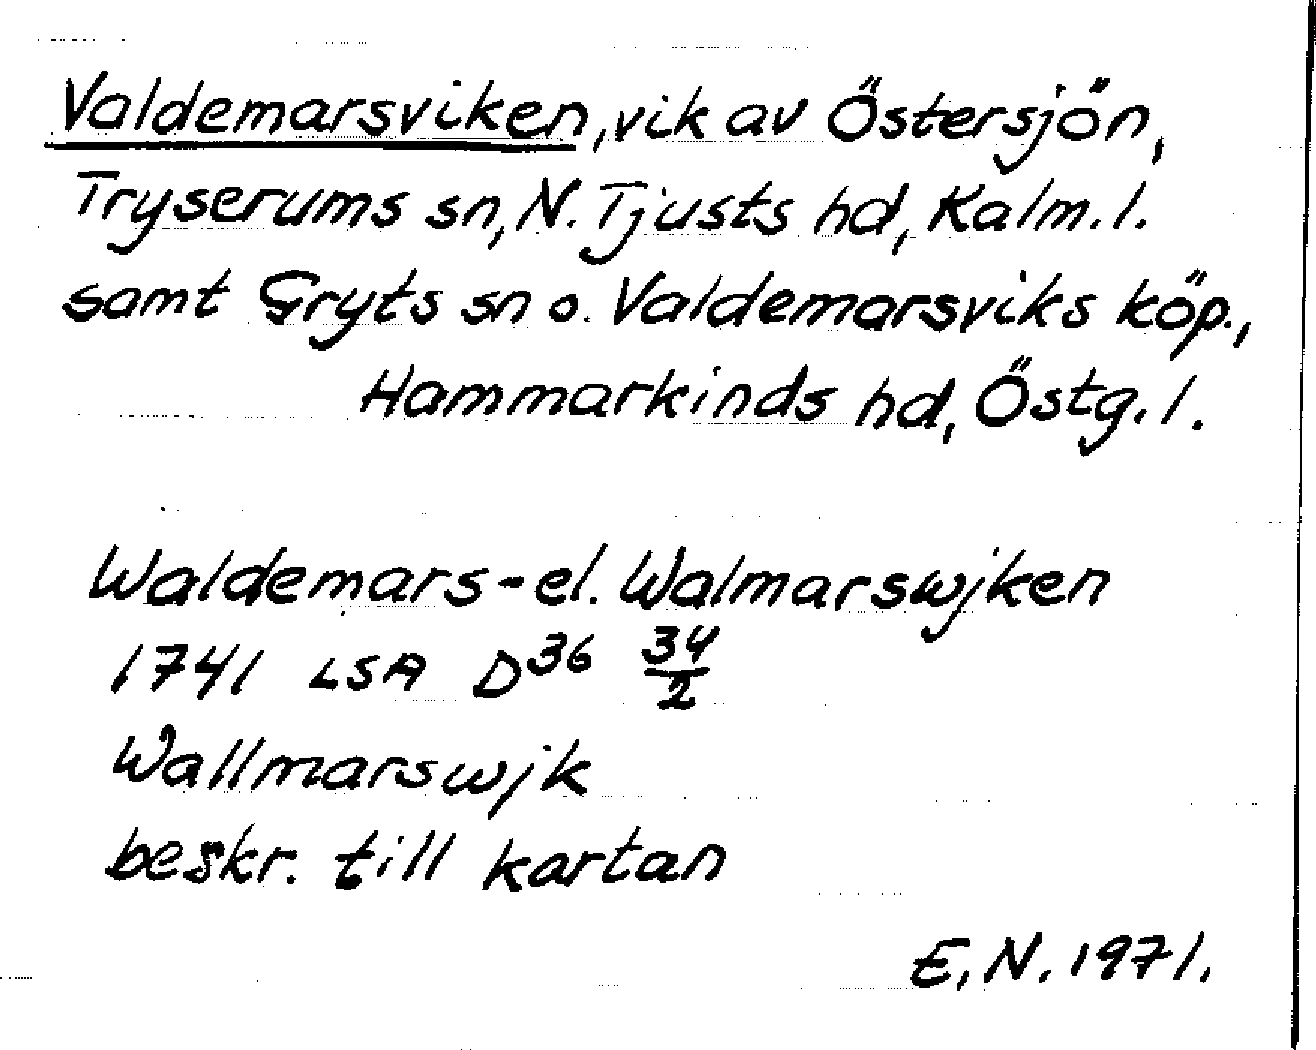 Valdemarsviken, vik av Östersjön,
Tryserums sn, N. Tjusts hd, Kalm. l.
samt Gryts sn o. Valdemarsviks köp.,
Hammarkinds hd, Östg. l.
Waldemars- el. Walmarswjken
1741 LSA D36 34/2
Wallmarswjk
beskr. till kartan
E. N. 1971.